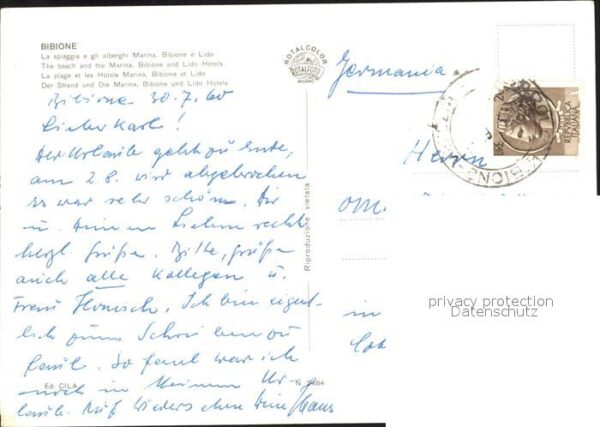 BIBIONE
La spiaggia e gli alberghi Marina, Bibione e Lido
The beach and the Marina, Bibione and Lido Hotels
La plage et les Hotels Marina, Bibione et Lido
Der Strand und Die Marina, Bibione und Lido Hotels
ROTALCOLOR
ROTALFOTO
MILANO
Bibione 30.7.60
Lieber Karl!
Der Urlaub geht zu Ende,
am 2.8. wird abgebrochen
Es war sehr schön. Dir
u. Deinen Lieben recht
herzl. Grüße. Bitte, grüße
auch alle Kollegen u.
Frau. Ich bin eigent-
lich zum Schreiben zu
faul. So faul war ich
noch in keinem Ur-
laub. Auf Wiedersehen Dein Hans
Ed. CILA
N. 2484
Riproduzione vietata
Germania
REPVBBLICA
ITALIANA
BIBIONE
Herrn
in
privacy protection
Datenschutz